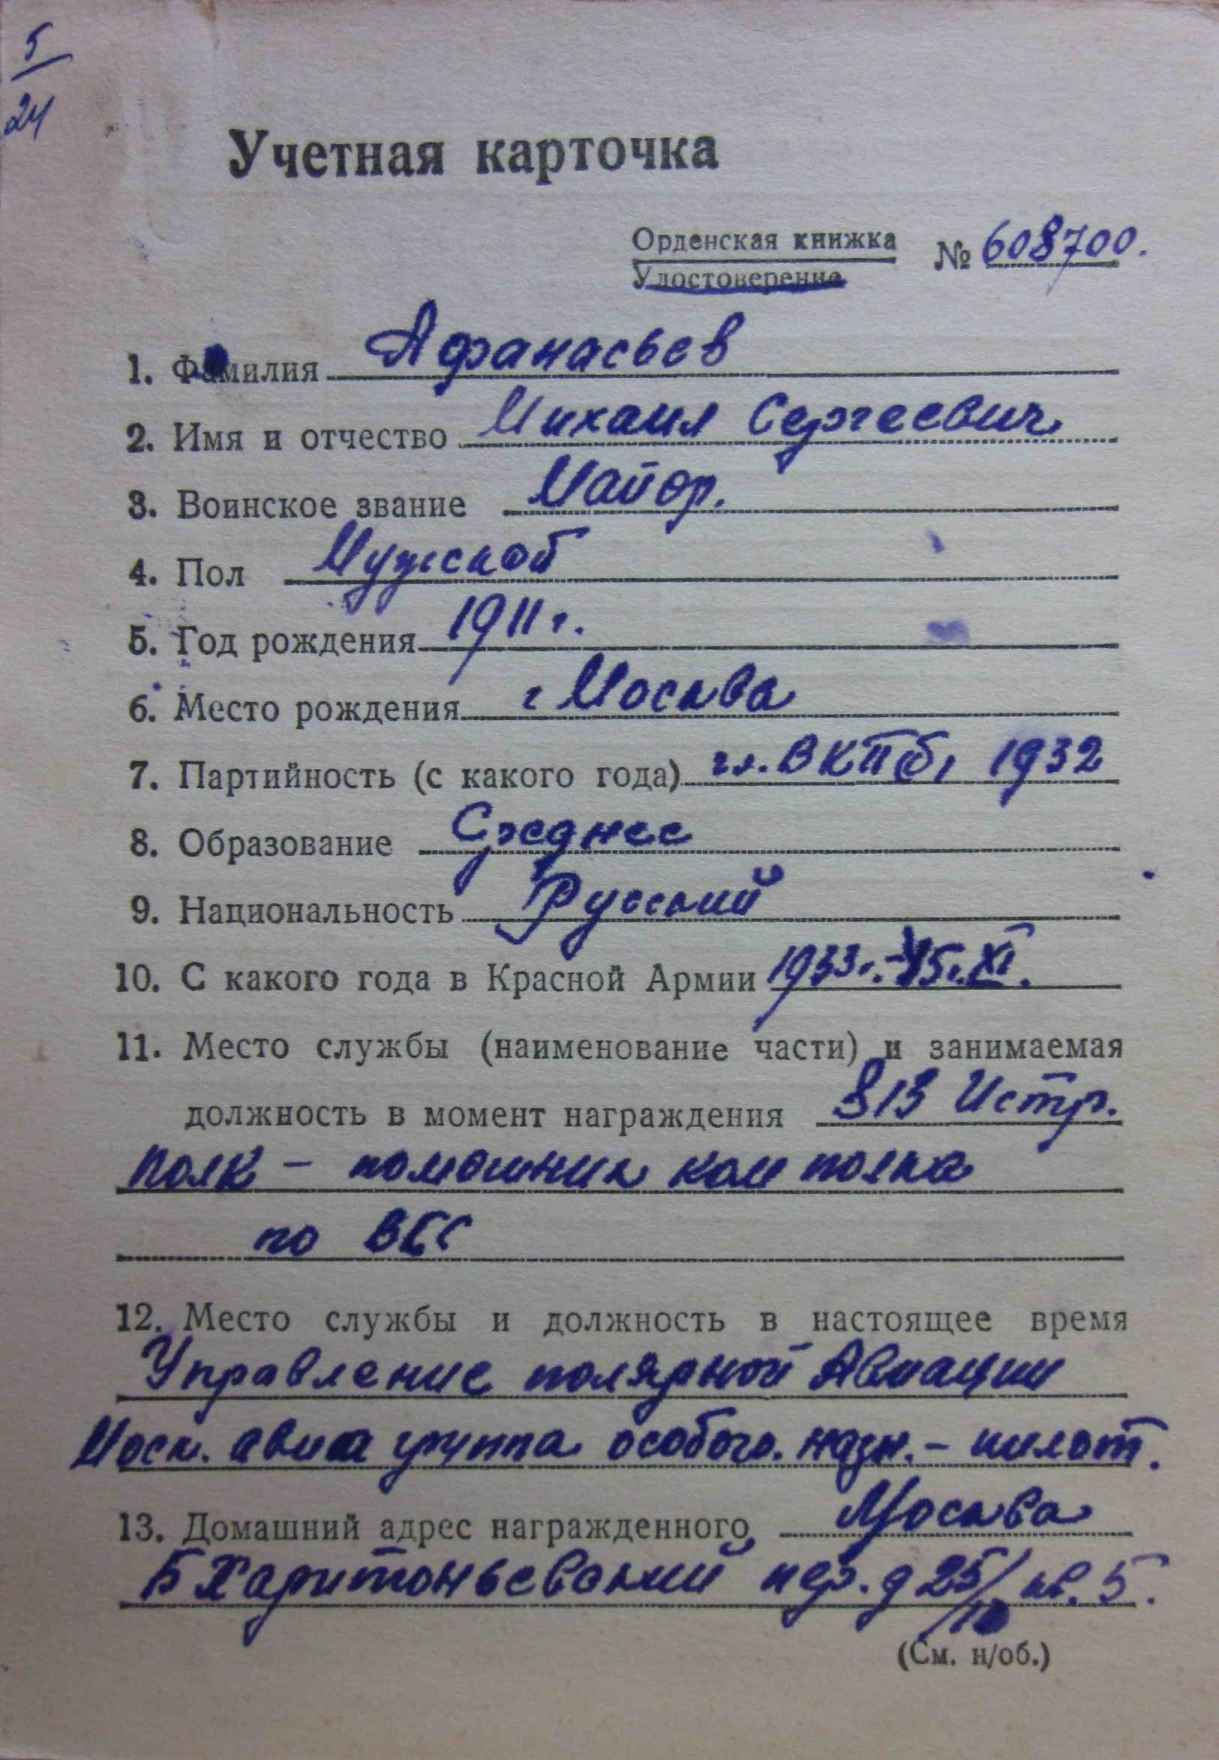 5
24
Учетная карточка
Орденская книжка № 608700.
Удостоверение
1. Фамилия Афанасьев
2. Имя и отчество Михаил Сергеевич
3. Воинское звание Майор.
4. Пол Мужской
5. Год рождения 1911 г.
6. Место рождения г Москва
7. Партийность (с какого года) чл. ВКПб, 1932
8. Образование Среднее
9. Национальность Русский
10. С какого года в Красной Армии 1933г.-45г. XI.
11. Место службы (наименование части) и занимаемая
должность в момент награждения 813 Истр.
полк - помошник ком полка
по ВСС
12. Место службы и должность в настоящее время
Управление полярной Авиации
Моск. авиа группа особого. назн. - пилот.
13. Домашний адрес награжденного Москва
Б Харитоньевский пер. д 25/ кв. 5.
(См. н/об.)